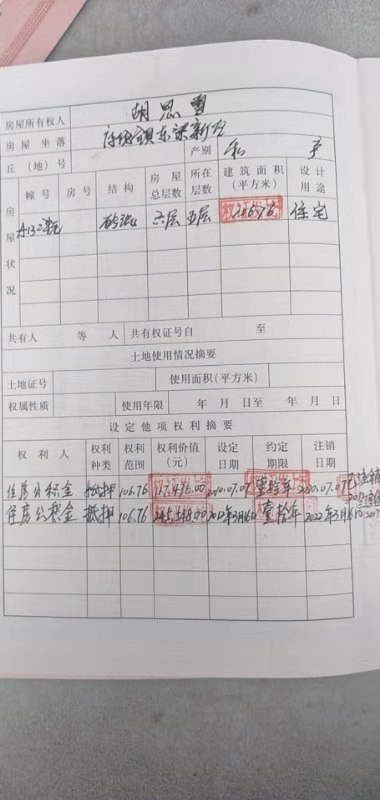 房屋所有权人 胡思雪
房屋坐落 府城镇东梁新公
丘（地）号 产别 私 产
房屋状况
幢号 房号 结构 房屋总层数 所在层数 建筑面积（平方米） 设计用途
砖混 六层 五层 106.76 住宅
共有人 等 人 共有权证号自 至
土地使用情况摘要
土地证号 使用面积（平方米）
权属性质 使用年限 年 月 日至 年 月 日
设定他项权利摘要
权利人 权利种类 权利范围 权利价值（元） 设定日期 约定期限 注销日期
住房公积金 抵押 106.76 117,436.00 2010.07.07 壹拾年
住房公积金 抵押 106.76 245,548.00 2012年3月16日 壹拾年 2022年3月16日